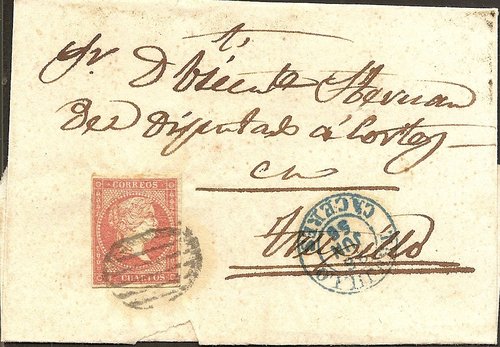 Sr. D Vicente Hernan
dez Diputado á Cortes
en
Trujillo
CORREOS
4 CUARTOS
CACERES